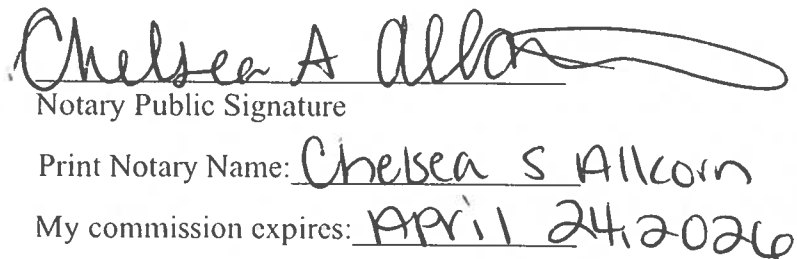 Chelsea A Allcorn
Notary Public Signature
Print Notary Name: Chelsea S Allcorn
My commission expires: April 24, 2026